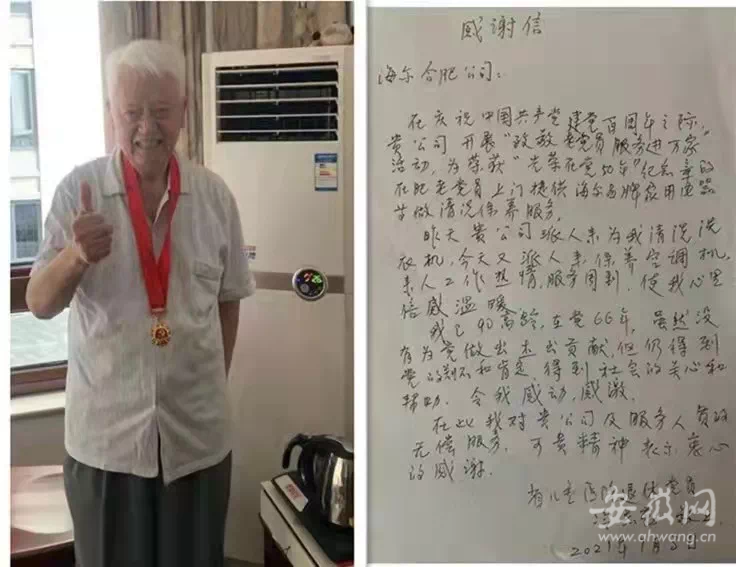 感谢信
海尔合肥公司：
在庆祝中国共产党建党百周年之际，
贵公司开展“致敬老党员服务进万家”
活动，为荣获“光荣在党50年”纪念章的
在肥老党员上门提供海尔品牌家用电器
节做清洗保养服务。
昨天贵公司派人来为我清洗洗
衣机，今天又派人来保养空调机，
来人工作热情，服务周到，使我心里
倍感温暖。
我已90高龄，在党66年，虽然没
有为党做出杰出贡献，但仍得到
党的关怀和肯定，得到社会的关心和
帮助。令我感动，感激。
在此我对贵公司及服务人员的
无偿服务，可贵精神表示衷心
的感谢。
省儿童医院退休党员
2021年7月5日
安徽网
www.ahwang.cn